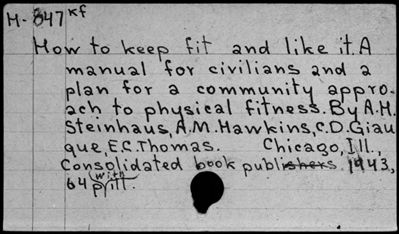 M-847 kf
How to keep fit and like it. A
manual for civilians and a
plan for a community appro-
ach to physical fitness. By A.H.
Steinhaus, A.M. Hawkins, C.D. Giau
que, E.C. Thomas. Chicago, Ill.,
Consolidated book publishers, 1943,
64 p. with ill.